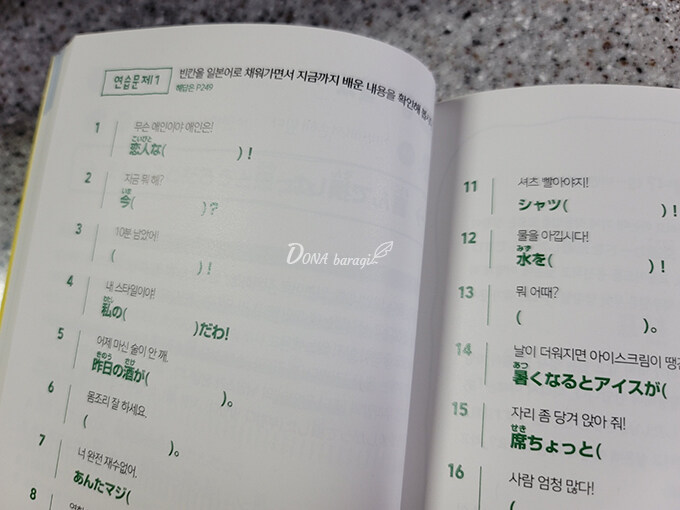 연습문제1 빈칸을 일본어로 채워가면서 지금까지 배운 내용을 확인해
해답은 P249
1 무슨 애인이야 애인은!
こいびと
恋人な( )!
2 지금 뭐 해?
いま
今( )?
3 10분 남았어!
( )!
4 내 스타일이야!
私の( )だわ!
5 어제 마신 술이 안 깨.
きのう さけ
昨日の酒が( )。
6 몸조리 잘 하세요.
( )。
7 너 완전 재수없어.
あんたマジ(
8
11 셔츠 빨아야지!
シャツ( )!
12 물을 아낍시다!
みず
水を( )!
13 뭐 어때?
( )。
14 날이 더워지면 아이스크림이
あつ
暑くなるとアイスが(
15 자리 좀 당겨 앉아 줘!
せき
席ちょっと(
16 사람 엄청 많다!
(
DONA baragi